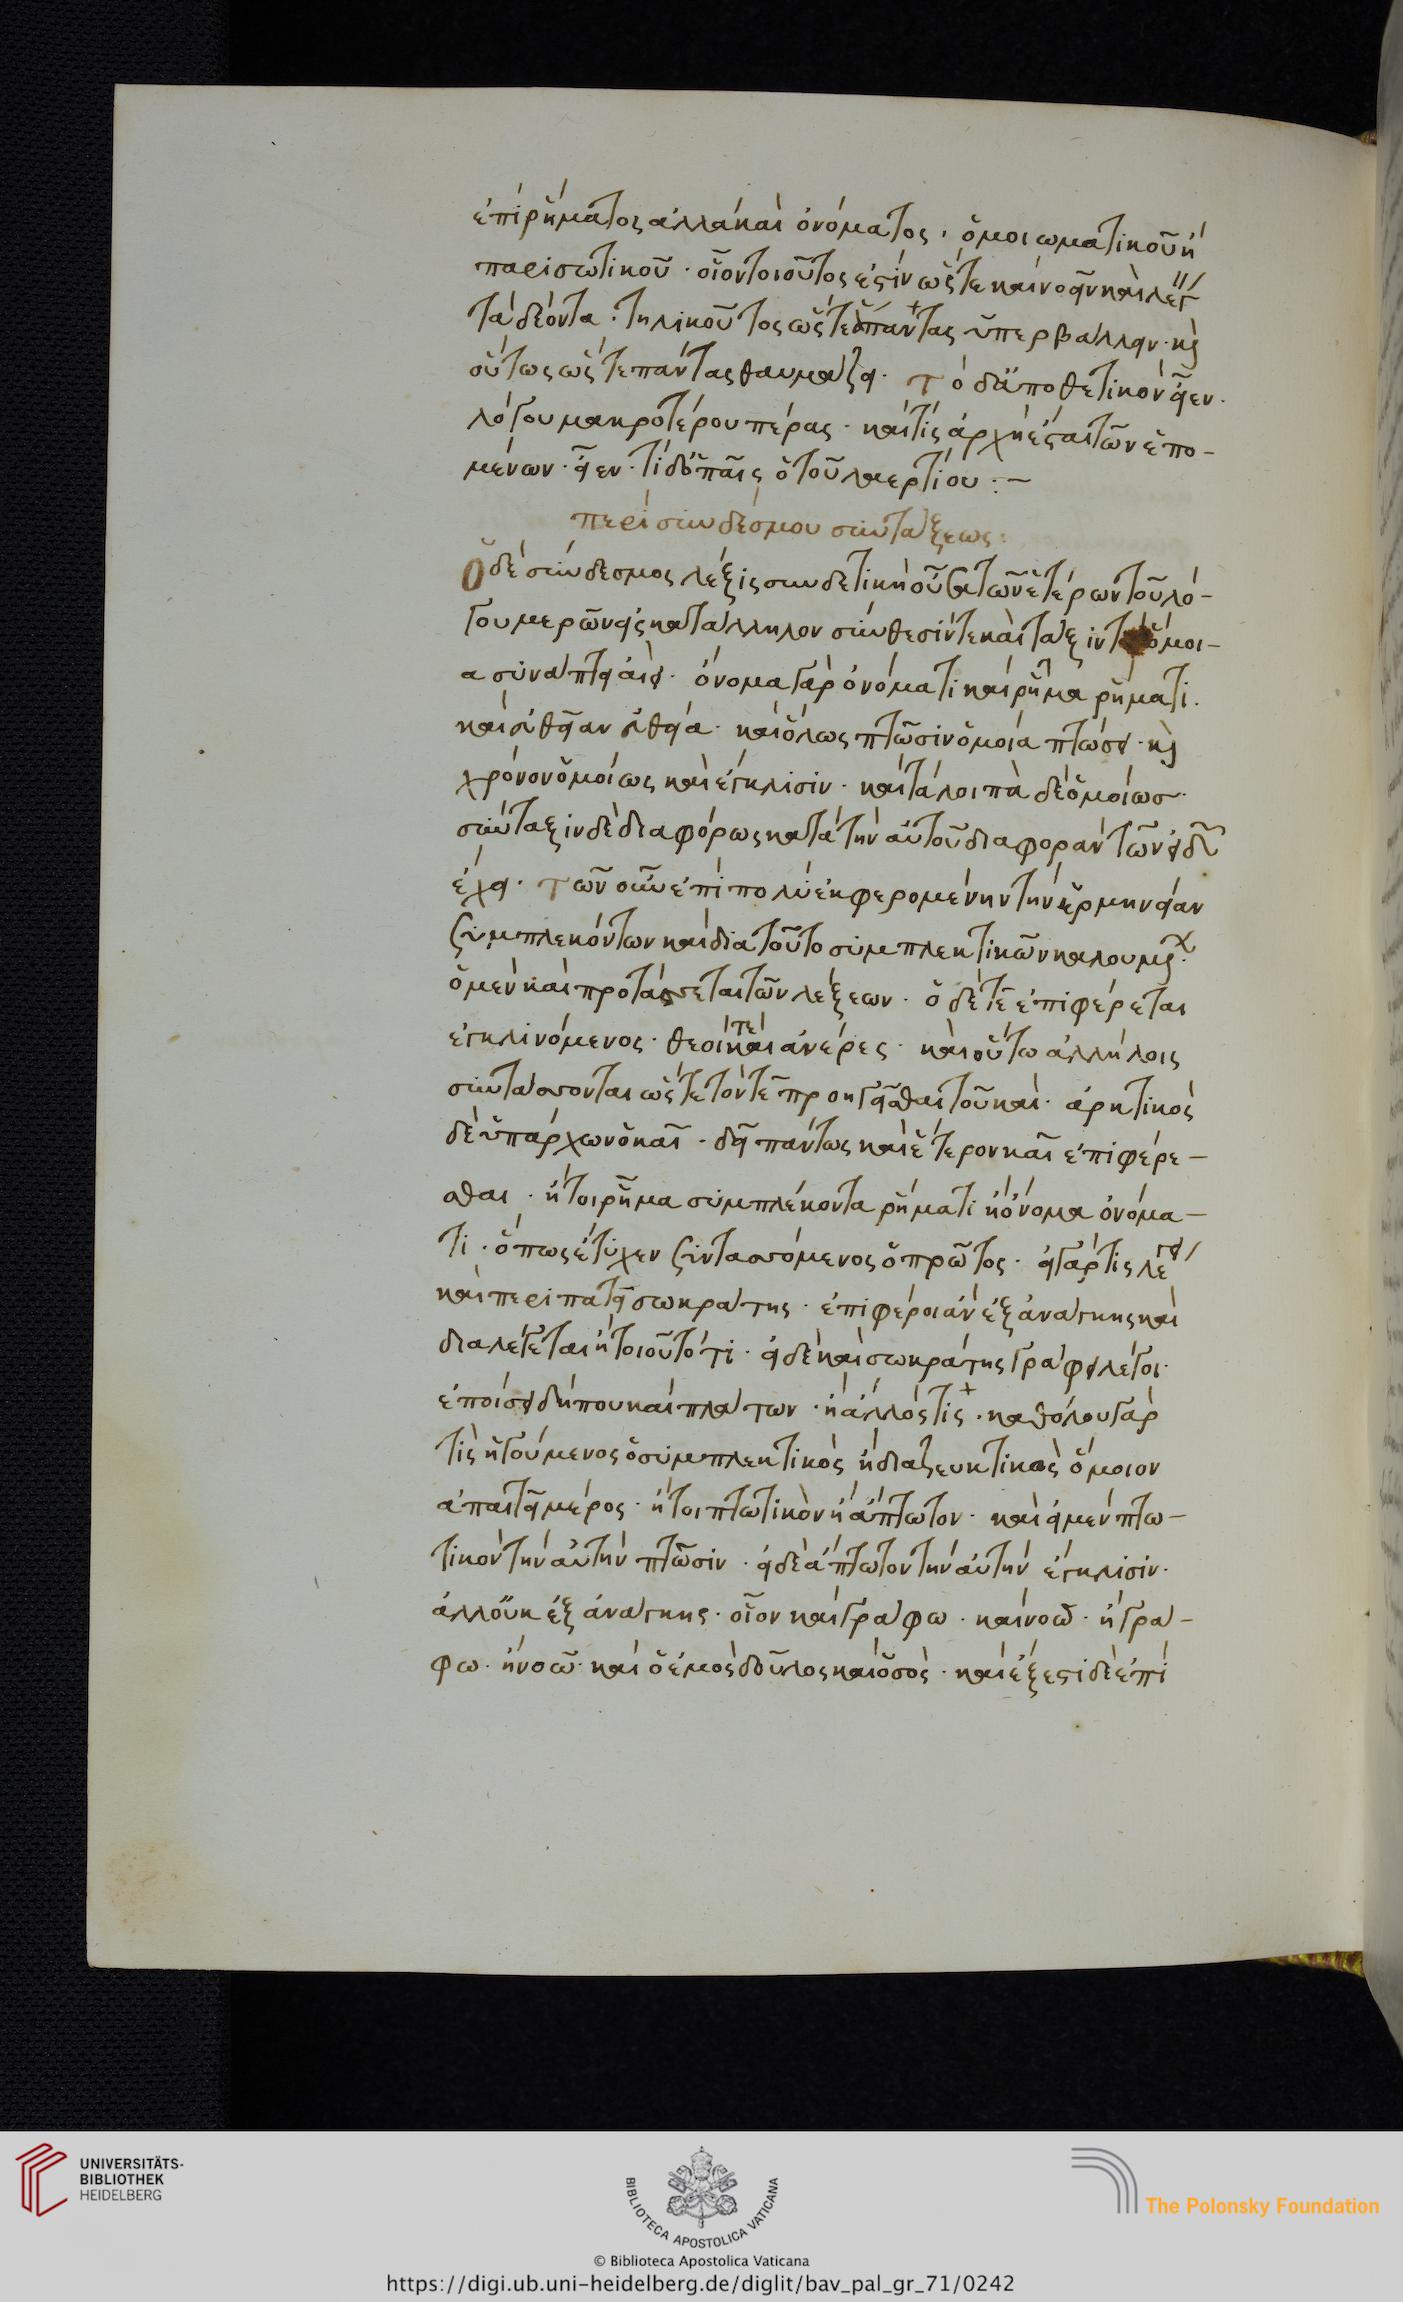 ἐπιρρήματος ἀλλὰ καὶ ὀνόματος. ὁμοιωματικοῦ ἢ
παρισωτικοῦ. οἷον τοιοῦτός ἐστιν ὥστε καὶ νοεῖν καὶ λέγ
τὰ δέοντα. τηλικοῦτος ὥστε πάντας ὑπερβάλλειν. καὶ
οὕτως ὥστε πάντας θαυμάζει. τὸ δ' ἀποθετικὸν εἶεν.
λόγου μακροτέρου πέρας. καί τις ἀρχὴ ἔσται τῶν ἑπο-
μένων. εἶεν. τί δ' ὁ παῖς ὁ τοῦ λαερτίου :~
περὶ συνδέσμου συντάξεως:
Ὁ δὲ σύνδεσμος λέξις συνδετικὴ οὖσα τῶν ἑτέρων τοῦ λό-
γου μερῶν εἰς κατάλληλον σύνθεσίν τε καὶ τάξιν τὰ ὅμοι-
α συνάπτει ἀεί. ὄνομα γὰρ ὀνόματι καὶ ῥῆμα ῥήματι.
καὶ εὐθεῖαν εὐθείᾳ. καὶ ὅλως πτῶσιν ὁμοίᾳ πτώσει. καὶ
χρόνον ὁμοίως καὶ ἔγκλισιν. καὶ τὰ λοιπὰ δὲ ὁμοίως.
σύνταξιν δὲ διαφόρως κατὰ τὴν αὐτοῦ διαφορὰν τῶν εἰδῶν
ἔχει. τῶν οὖν ἐπὶ πολὺ ἐκφερομένην τὴν ἑρμηνείαν
συμπλεκόντων καὶ διὰ τοῦτο συμπλεκτικῶν καλουμέν
ὁ μὲν καὶ προτάσσεται τῶν λέξεων. ὁ δὲ τὲ ἐπιφέρεται
ἐγκλινόμενος. θεοί τε καὶ ἀνέρες. καὶ οὕτω ἀλλήλοις
συντάσσονται ὥστε τὸν τὲ προηγεῖσθαι τοῦ καί. ἀρκτικὸς
δὲ ὑπάρχων ὁ καὶ. δεῖ πάντως καὶ ἕτερον καὶ ἐπιφέρε-
σθαι. ἤτοι ῥῆμα συμπλέκοντα ῥήματι ἢ ὄνομα ὀνόμα-
τι. ὅπως ἔτυχεν συντασσόμενος ὁ πρῶτος. εἰ γάρ τις λέγει
καὶ περιπατεῖ σωκράτης. ἐπιφέροι ἂν ἐξ ἀνάγκης καὶ
διαλέγεται ἢ τοιοῦτό τι. εἰ δὲ καὶ σωκράτης γράφει λέγοι.
ἐποίσει δήπου καὶ πλάτων. ἢ ἄλλός τις. καθόλου γάρ
τις ἡγούμενος ὁ συμπλεκτικὸς ἢ διαζευκτικὸς ὅμοιον
ἀπαιτεῖ μέρος. ἤτοι πτωτικὸν ἢ ἄπτωτον. καὶ εἰ μὲν πτω-
τικὸν τὴν αὐτὴν πτῶσιν. εἰ δὲ ἄπτωτον τὴν αὐτὴν ἔγκλισιν.
ἀλλ' οὐκ ἐξ ἀνάγκης. οἷον καὶ γράφω. καὶ νοῶ. ἢ γρά-
φω. ἢ νοῶ. καὶ ὁ ἐμὸς δοῦλος καὶ ὁ σὸς. καὶ ἔξεστι δὲ ἐπὶ
UNIVERSITÄTS-
BIBLIOTHEK
HEIDELBERG
BIBLIOTECA APOSTOLICA VATICANA
© Biblioteca Apostolica Vaticana
The Polonsky Foundation
https://digi.ub.uni-heidelberg.de/diglit/bav_pal_gr_71/0242